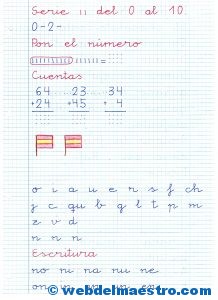 Serie 11 del 0 al 10.
0-2-
Pon el número
Cuentas
64 23 34
+24 +45 + 4
o i a u e r s f ch
j c qu b g l t p m
z v d
n n n
Escritura
no ni na nu ne
on in an un en
© webdelmaestro.com